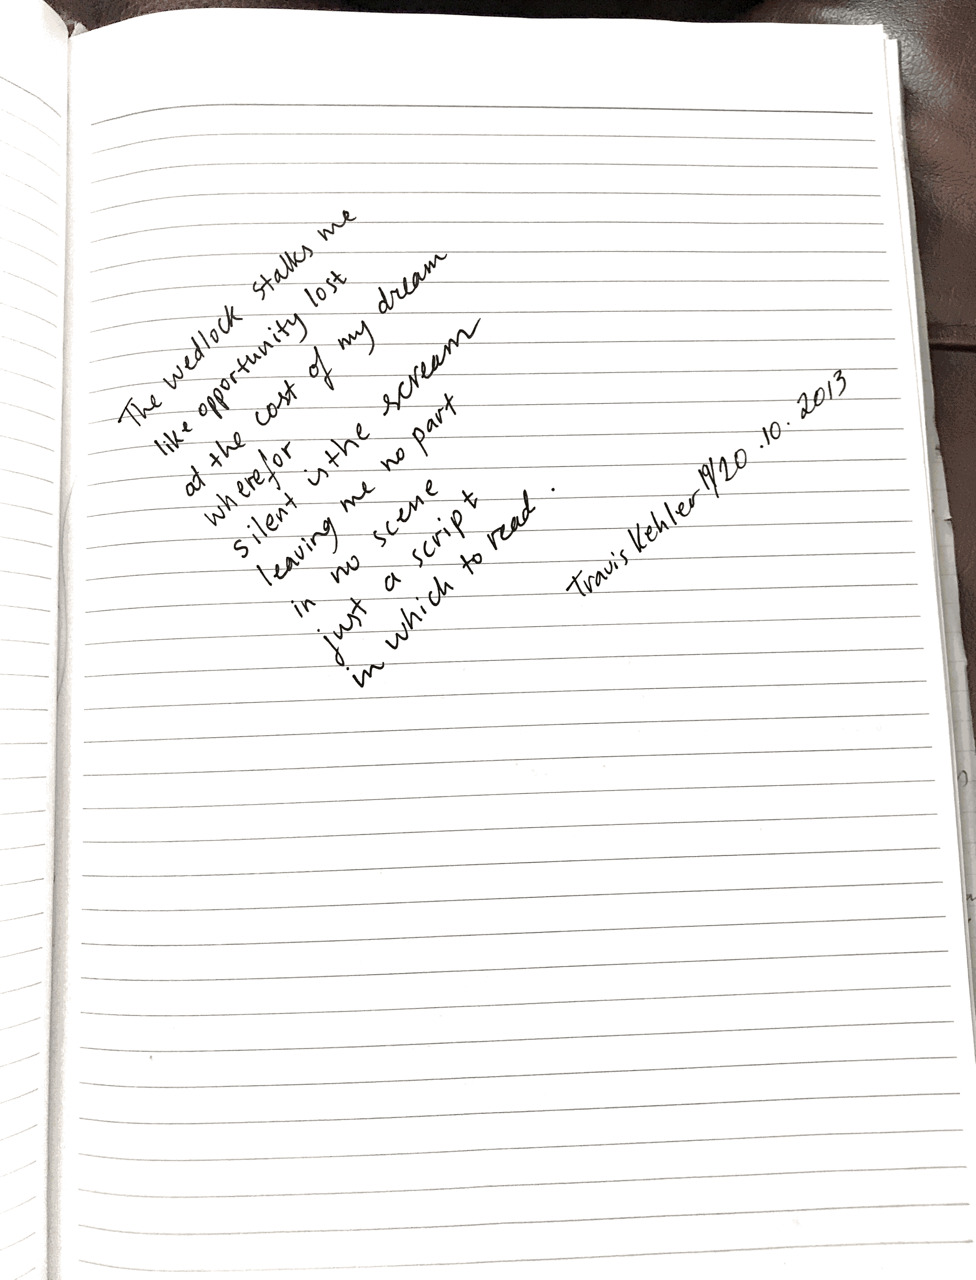 The wedlock stalks me
like opportunity lost
at the cost of my dream
wherefor
silent is the scream
leaving me no part
in no scene
just a script
in which to read.
Travis Kehler 19/20.10.2013